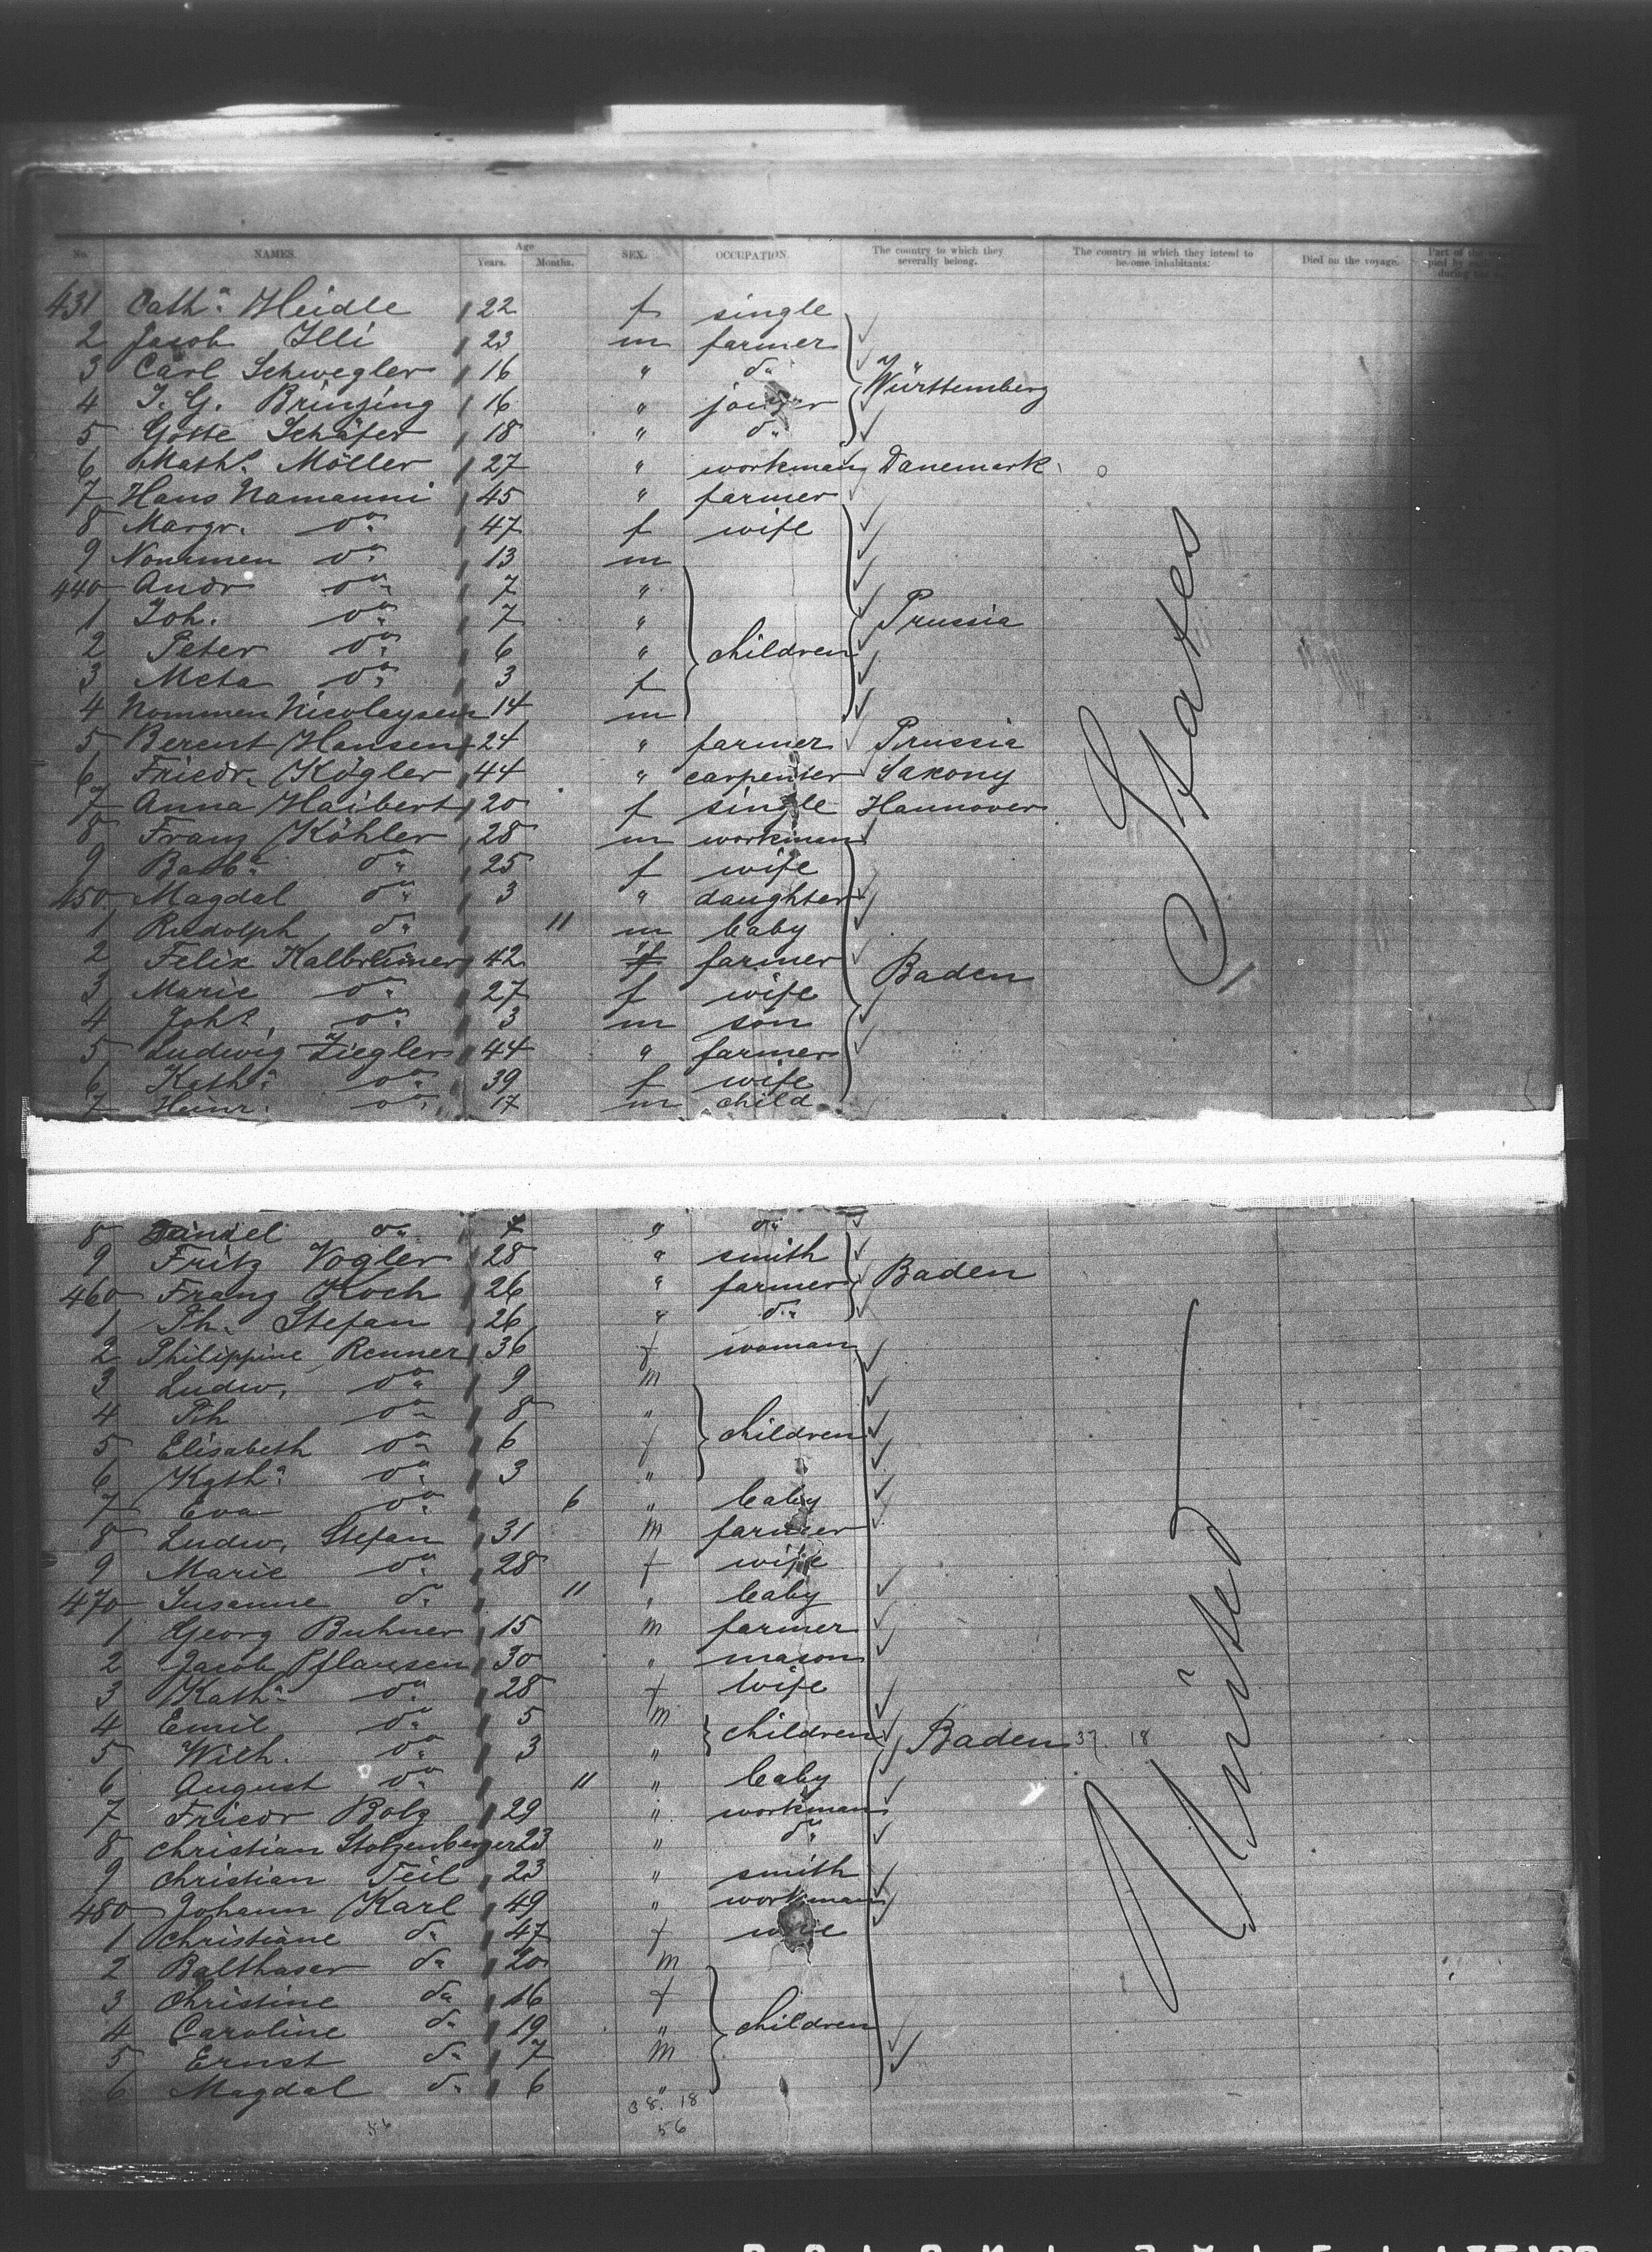 No. NAMES. Age Years. Months. SEX. OCCUPATION. The country to which they severally belong. The country in which they intend to become inhabitants: Died on the voyage. Part of the
431 Cath.a Heidle 22 f single
2 Jacob Illi 23 m farmer
3 Carl Schwegler 16 " do Württemberg
4 J. G. Brinzing 16 "
5 Schäfer 18 " do
6 Math.s Möller 27 " workman Danemark
7 Hans Namanni 45 " farmer
8 Margr. do 47 f wife
9 Nommen do 13 m
440 Andr do 7 "
1 Joh. do 7 " Prussia
2 Peter do 6 " children
3 Meta do 3 f
4 Nommen Nicolaysen 14 m
5 Berent Hansen 24 " farmer Prussia
6 Friedr. Kögler 44 " carpenter Saxony
7 Anna Haibert 20 f single Hannover
8 Franz Köhler 28 m workman
9 Barb.a do 25 f wife
450 Magdal do 3 " daughter
1 Rudolph do 11 m baby
2 Felix 42 farmer Baden
3 Marie do 27 f wife
4 Joh.s do 3 m son
5 Ludwig Ziegler 44 " farmer
6 Kath.a do 39 f wife
7 Heinr. do 17 m child
States
8 do " do
9 Fritz Vogler 28 " smith
460 Franz Koch 26 " farmer Baden
1 Ph. Stefan 26 " do
2 Philippine Renner 36 f woman
3 Ludw. do 9 m
4 Ph do 8 " children
5 Elisabeth do 6 f
6 Kath.a do 3 "
7 Eva do 6 " baby
8 Ludw. Stefan 31 m farmer
9 Marie do 28 f wife
470 Susanne do 11 " baby
1 Georg Buhner 15 m farmer
2 Jacob Pflausen 30 " mason
3 Kath.a do 28 f wife
4 Emil do 5 m children
5 Wilh. do 3 " Baden 37. 18
6 August do 11 " baby
7 Friedr Bolz 29 " workman
8 Christian Stolzenberger 23 " do
9 Christian Teil 23 " smith
480 Johann Karl 49 " workman
1 Christiane do 47 f wife
2 Balthasar do 20 m
3 Christine do 16 f
4 Caroline do 19 " children
5 Ernst do 7 m
6 Magdal do 6 "
United
38. 18
56 56